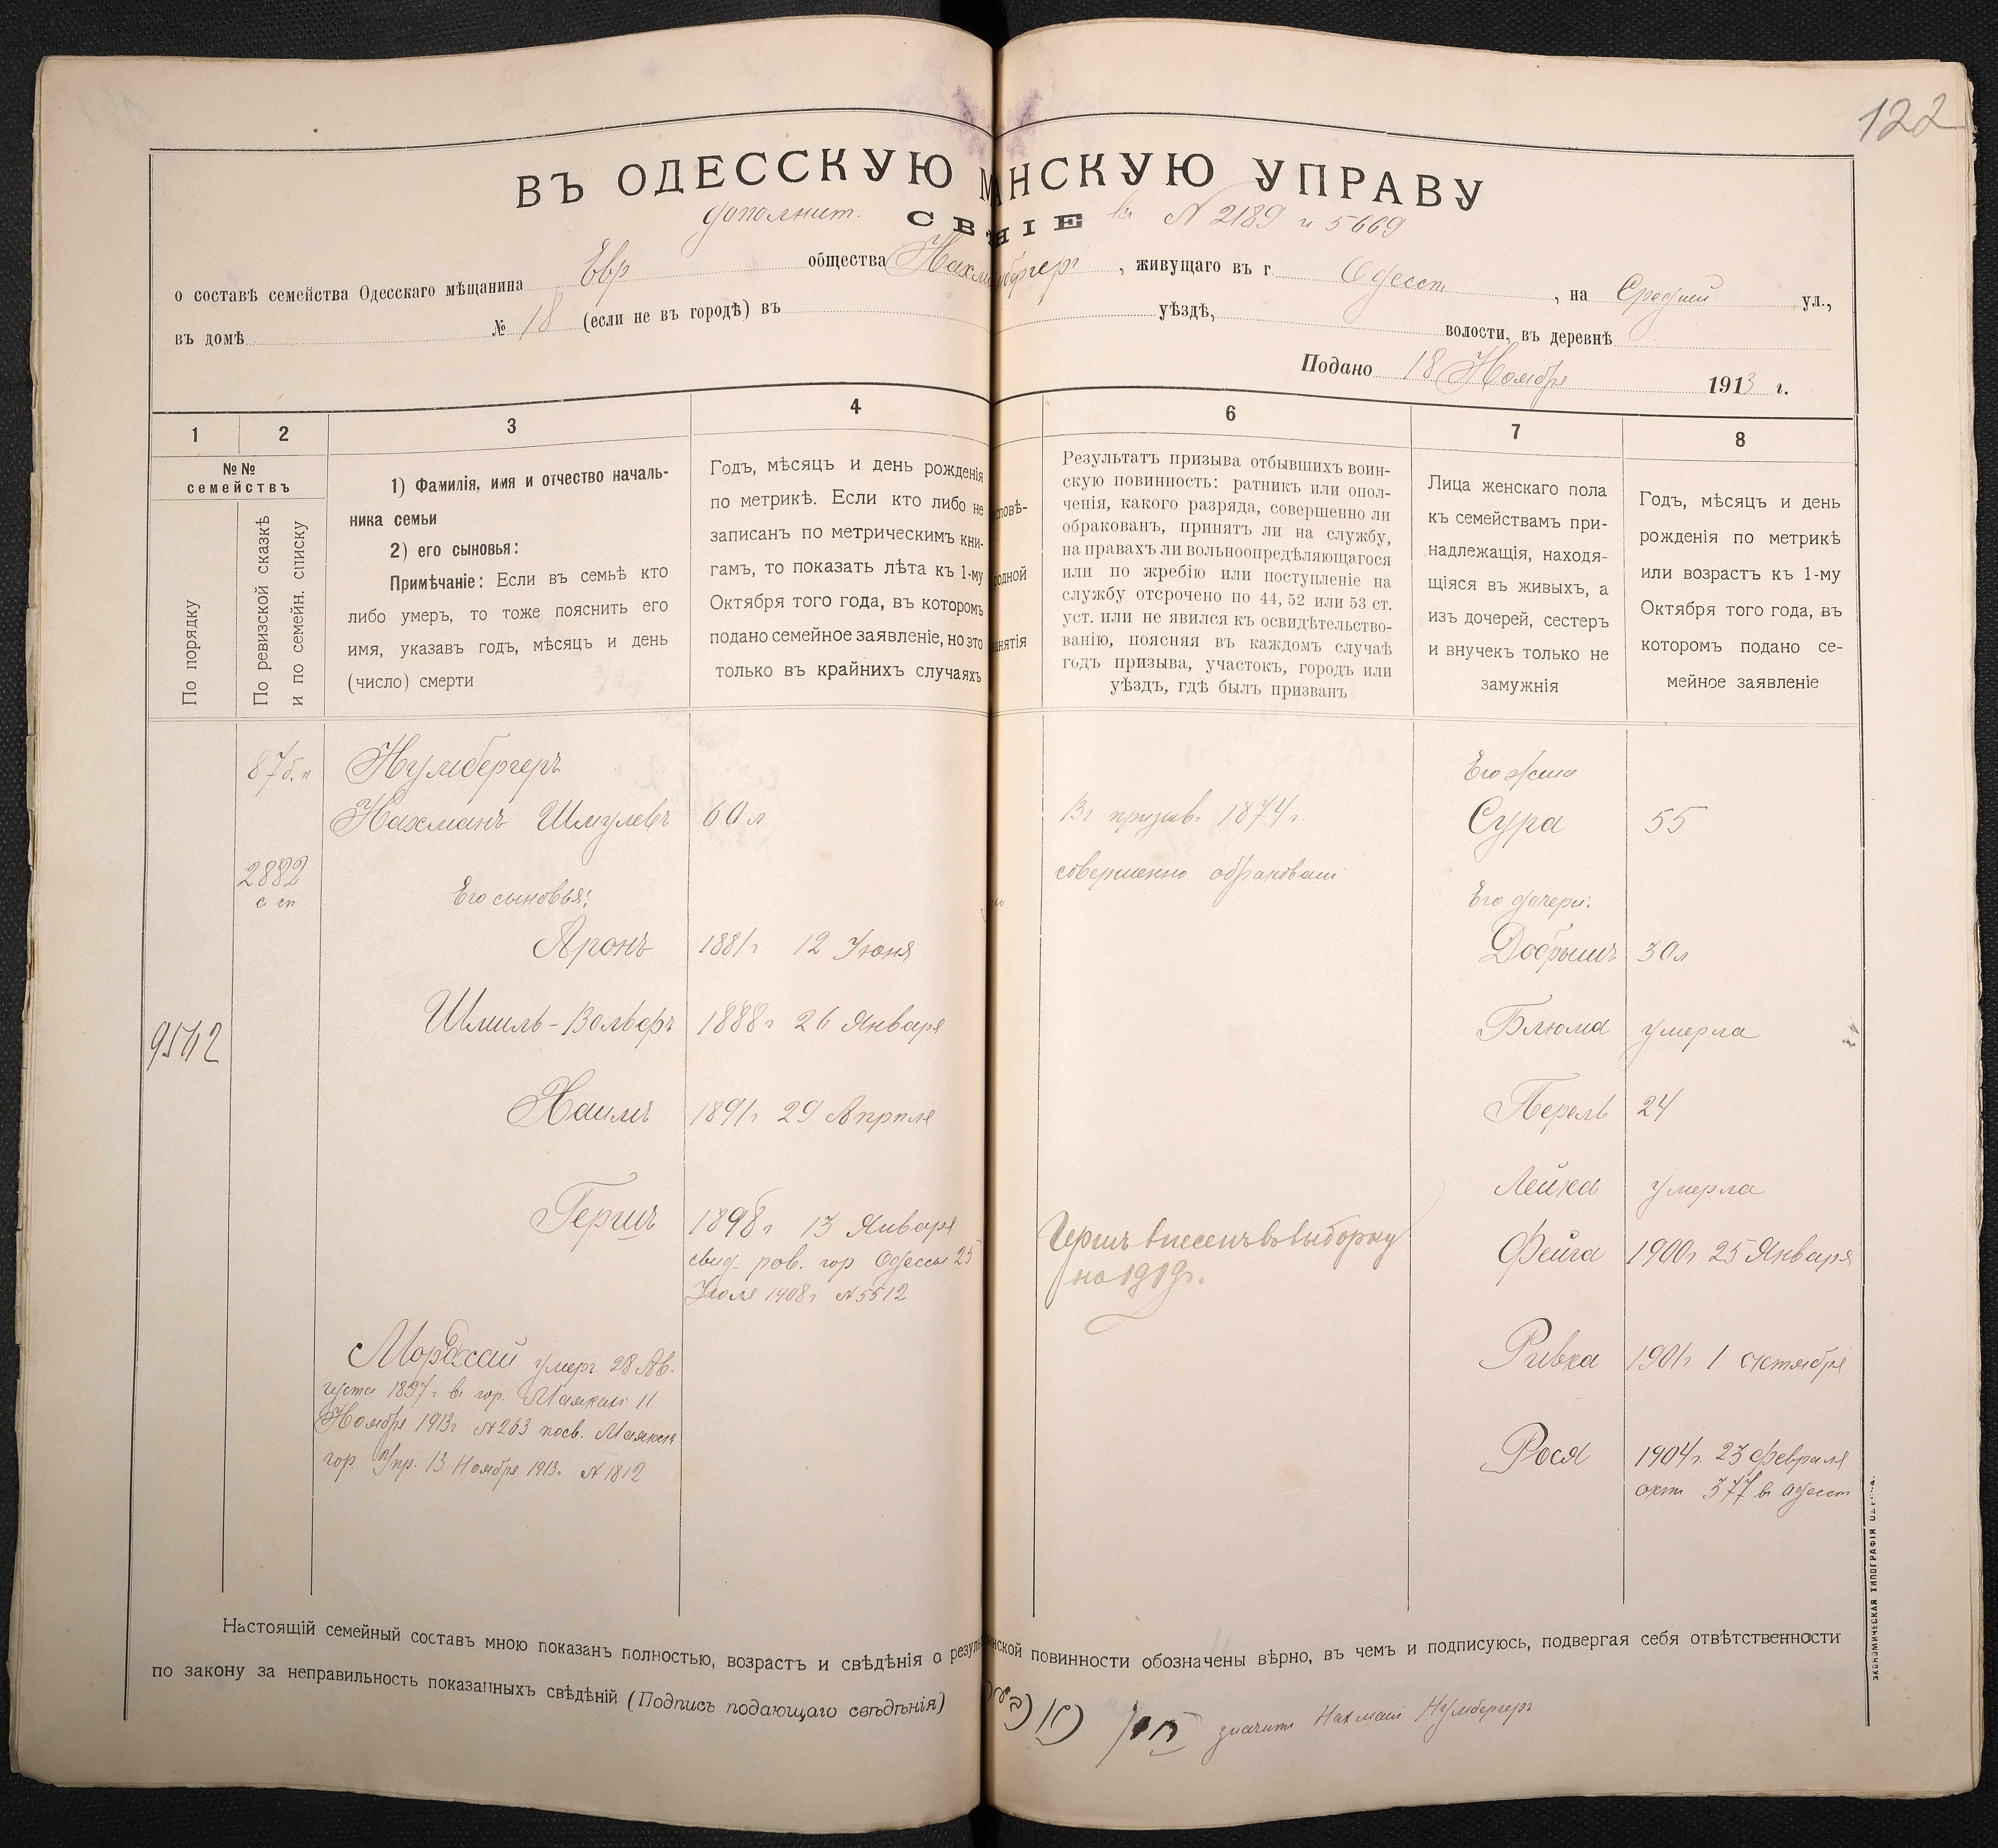 122
ВЪ ОДЕССКУЮ МѢ НСКУЮ УПРАВУ
дополнит. СВ НІЕ къ № 2189 и 5669
о составѣ семейства Одесскаго мѣщанина Евр общества Нахм мбергеръ, живущаго въ г Одессѣ, на Средней ул.,
въ домѣ № 18 (если не въ городѣ) въ уѣздѣ, волости, въ деревнѣ
Подано 18 Ноября 1913 г.
1
2
3
4
6
7
8
№№
семействъ
По порядку
По ревизской сказкѣ
и по семейн. списку
1) Фамилія, имя и отчество началь-
ника семьи
2) его сыновья:
Примѣчаніе: Если въ семьѣ кто
либо умеръ, то тоже пояснить его
имя, указавъ годъ, мѣсяцъ и день
(число) смерти
Годъ, мѣсяцъ и день рожденія
по метрикѣ. Если кто либо не
записанъ по метрическимъ кни-
гамъ, то показать лѣта къ 1-му
Октября того года, въ которомъ
подано семейное заявленіе, но это
только въ крайнихъ случаяхъ
повѣ-
одной
анятія
Результатъ призыва отбывшихъ воин-
скую повинность: ратникъ или опол-
ченія, какого разряда, совершенно ли
обракованъ, принятъ ли на службу,
на правахъ ли вольноопредѣляющагося
или по жребію или поступленіе на
службу отсрочено по 44, 52 или 53 ст.
уст. или не явился къ освидѣтельство-
ванію, поясняя въ каждомъ случаѣ
годъ призыва, участокъ, городъ или
уѣздъ, гдѣ былъ призванъ
Лица женскаго пола
къ семействамъ при-
надлежащія, находя-
щіяся въ живыхъ, а
изъ дочерей, сестеръ
и внучекъ только не
замужнія
Годъ, мѣсяцъ и день
рожденія по метрикѣ
или возрастъ къ 1-му
Октября того года, въ
которомъ подано се-
мейное заявленіе
9562
87
2882
с сп
Нумбергеръ
Нахманъ Шмулевъ 60 л
Въ призыв. 1874 г
совершенно обракованъ
Его сыновья:
Аронъ 1881 г 12 Іюня
Шмиль-Вольфъ 1888 г 26 Января
Хаимъ 1891 г 29 Апрѣля
Гершъ 1898 г 13 Января
свид. рав. гор Одессы 25
Іюля 1908 г № 5512
Гершъ внесенъ въ выборку
на 1919 г.
Мордхай умеръ 28 Ав.
густа 1897 г въ гор. Маякахъ 11
Ноября 1913 г № 263 посв. Маякск
гор. Упр. 13 Ноября 1913 г № 1812
Его жена
Сура 55
Его дочери:
Добрышъ 30 л
Блюма умерла
Перель 24
Лейка умерла
Фейга 1900 г 25 Января
Ривка 1901 г 1 октября
Рося 1904 г. 23 февраля
377 въ Одессѣ
Настоящій семейный составъ мною показанъ полностью, возрастъ и свѣдѣнія о резуль нской повинности обозначены вѣрно, въ чемъ и подписуюсь, подвергая себя отвѣтственности
по закону за неправильность показанныхъ свѣдѣній (Подпись подающаго свѣдѣнія) значитъ Нахманъ Нумбергеръ
ЭКОНОМИЧЕСКАЯ ТИПОГРАФІЯ